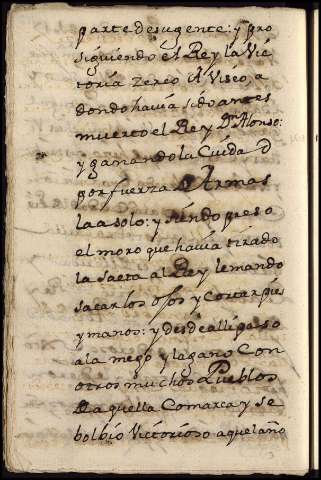 parte desugente: y pro
siguiendo el Rey la Vic
toria zerco â Viseo, a
donde havia sido antes
muerto el Rey Dn Alonso:
y ganando la Ciuda d
por fuerza D Armas
la asolo: y siendo preso
el moro que havia tirado
la saeta al Rey le mando
sacar los ojos y cortar pies
y manos: y desde alli passo
a la mego y la gano Con
otros muchos Pueblos
D aquella Comarca y se
bolbio Victorioso aquel año